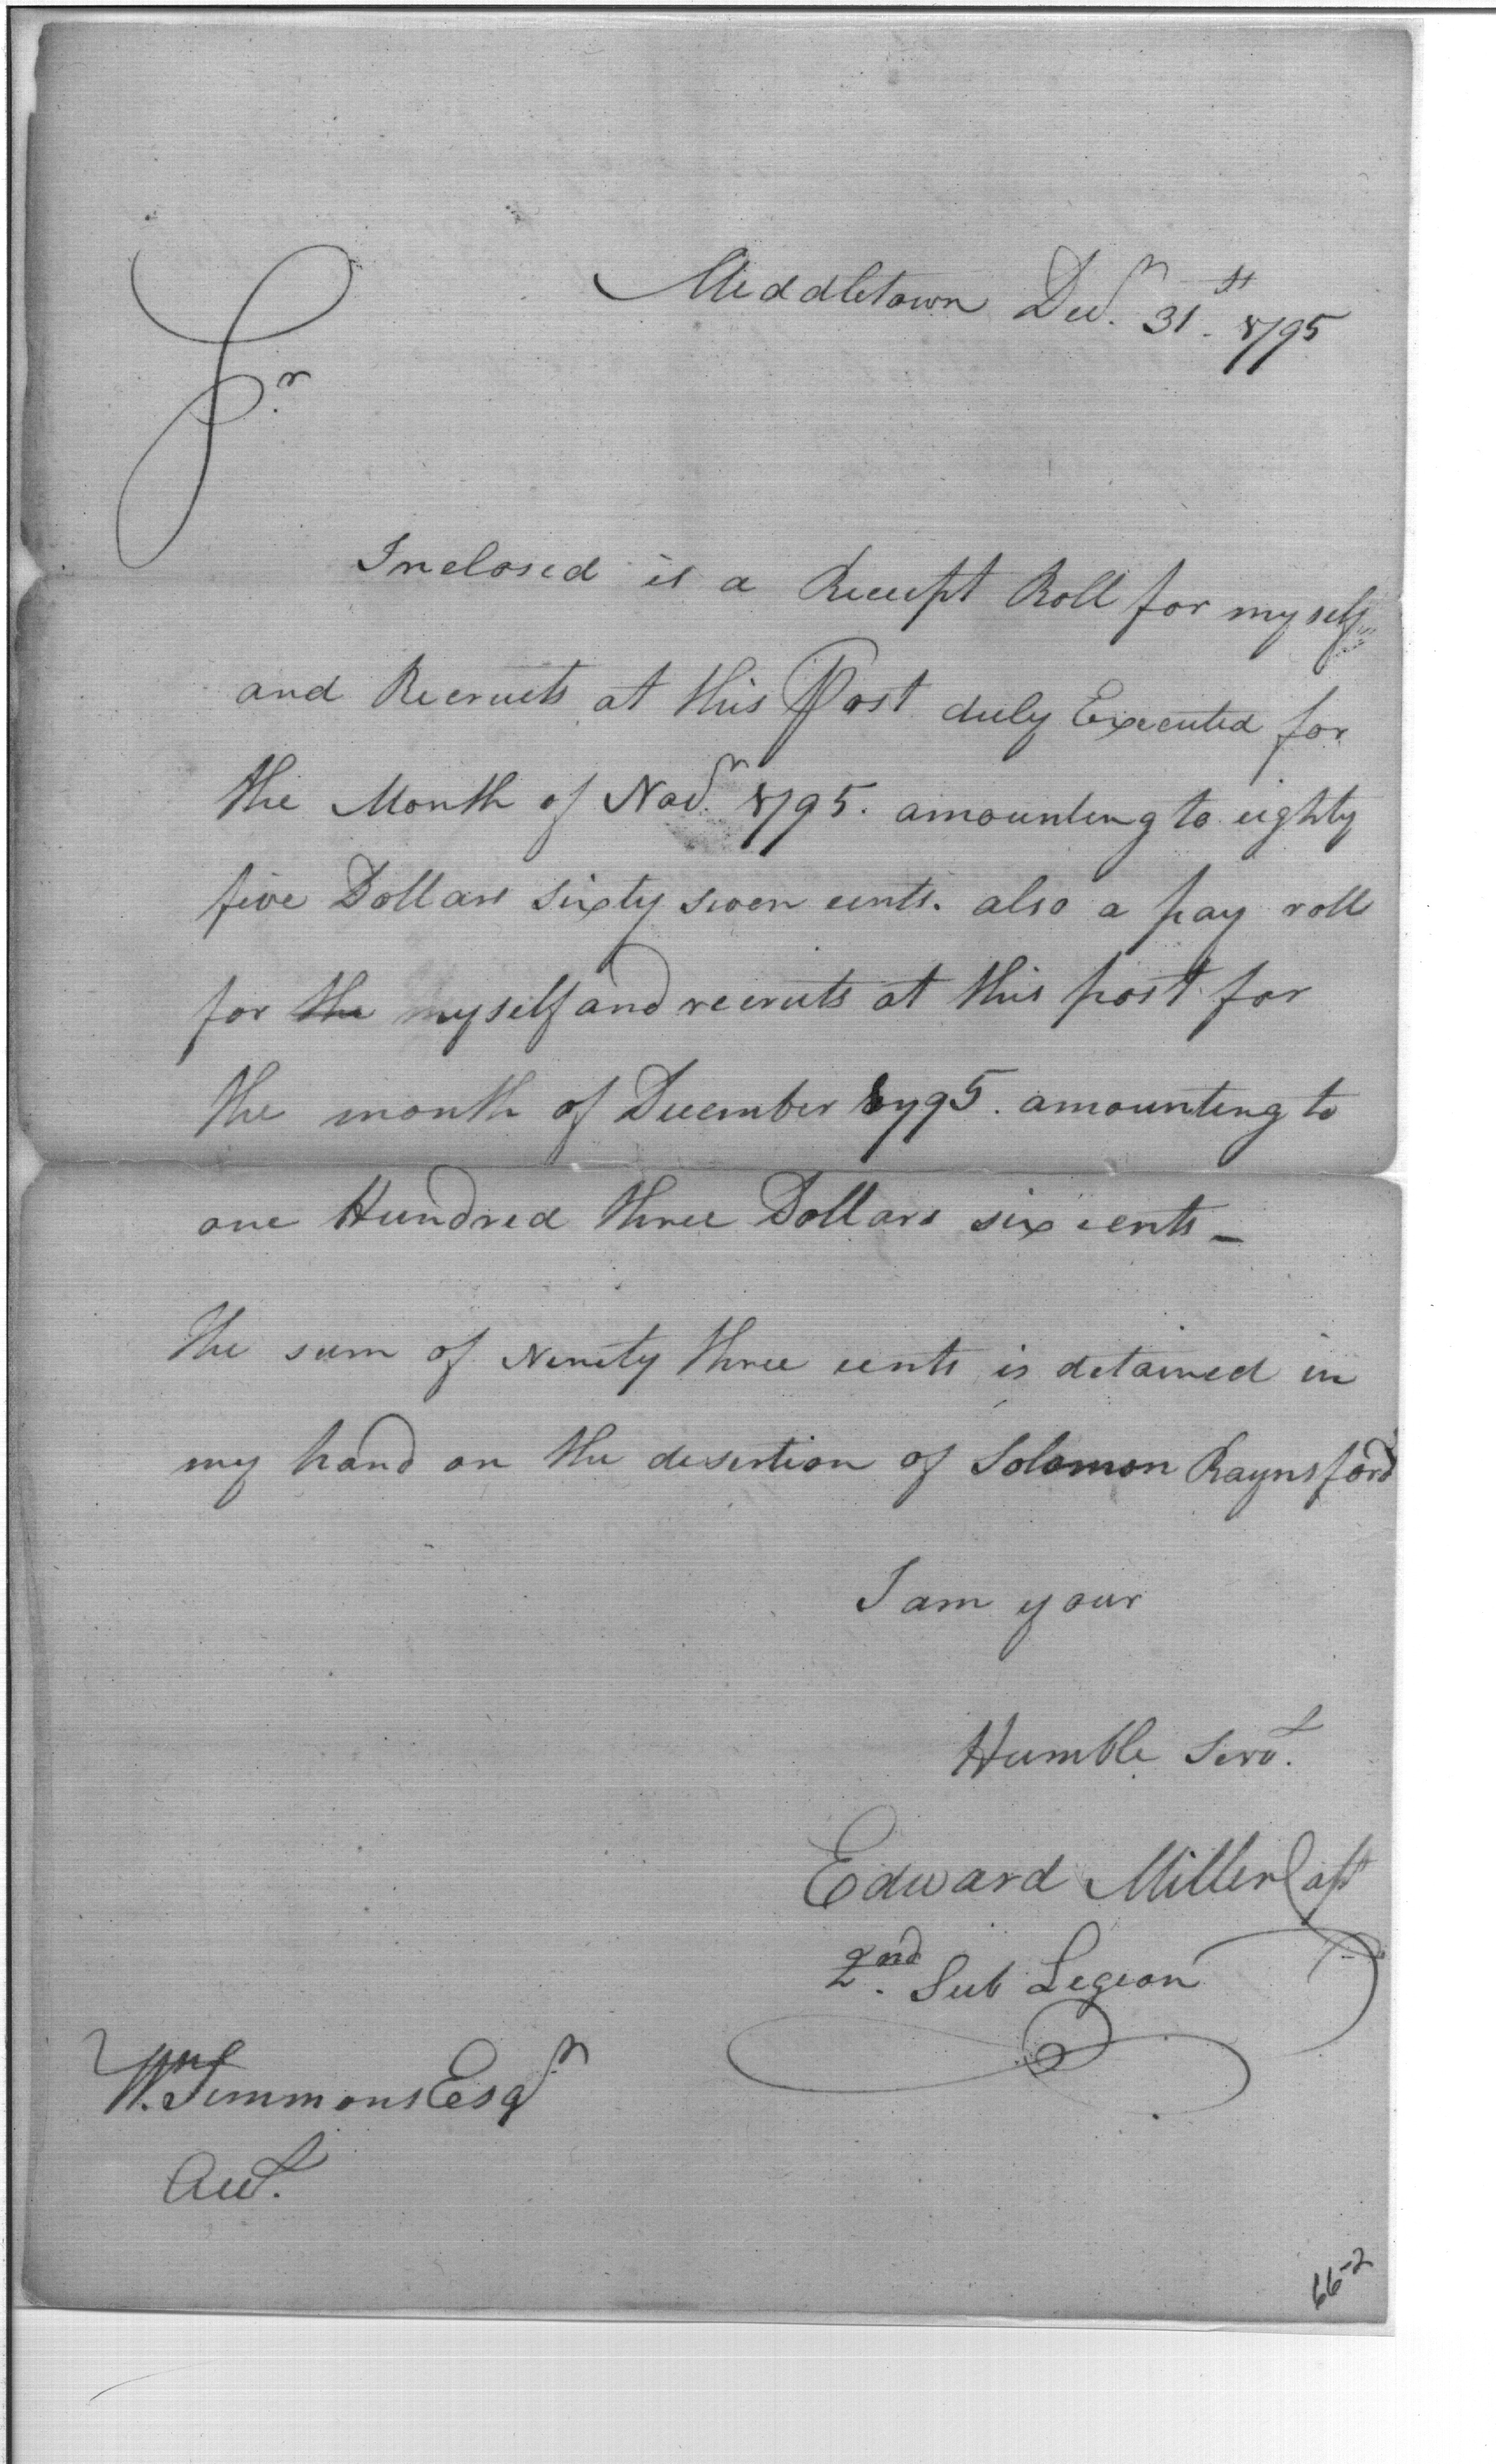 Middletown Decr. 31st. 1795
Sr.
Inclosed is a Receipt Roll for myself
and Recruits at this Post duly Executed for
the Month of Novr. 1795. amounting to eighty
five Dollars sixty seven cents. also a pay roll
for the myself and recruits at this post for
the month of December 1795. amounting to
one Hundred three Dollars six cents _
the sum of Ninety three cents is detained in
my hand on the desertion of Solomon Raynsford
I am your
Humble Servt.
Edward Miller Capt
2nd. Sub Legion
Wm. Simmons Esqr
Acct.
66-2